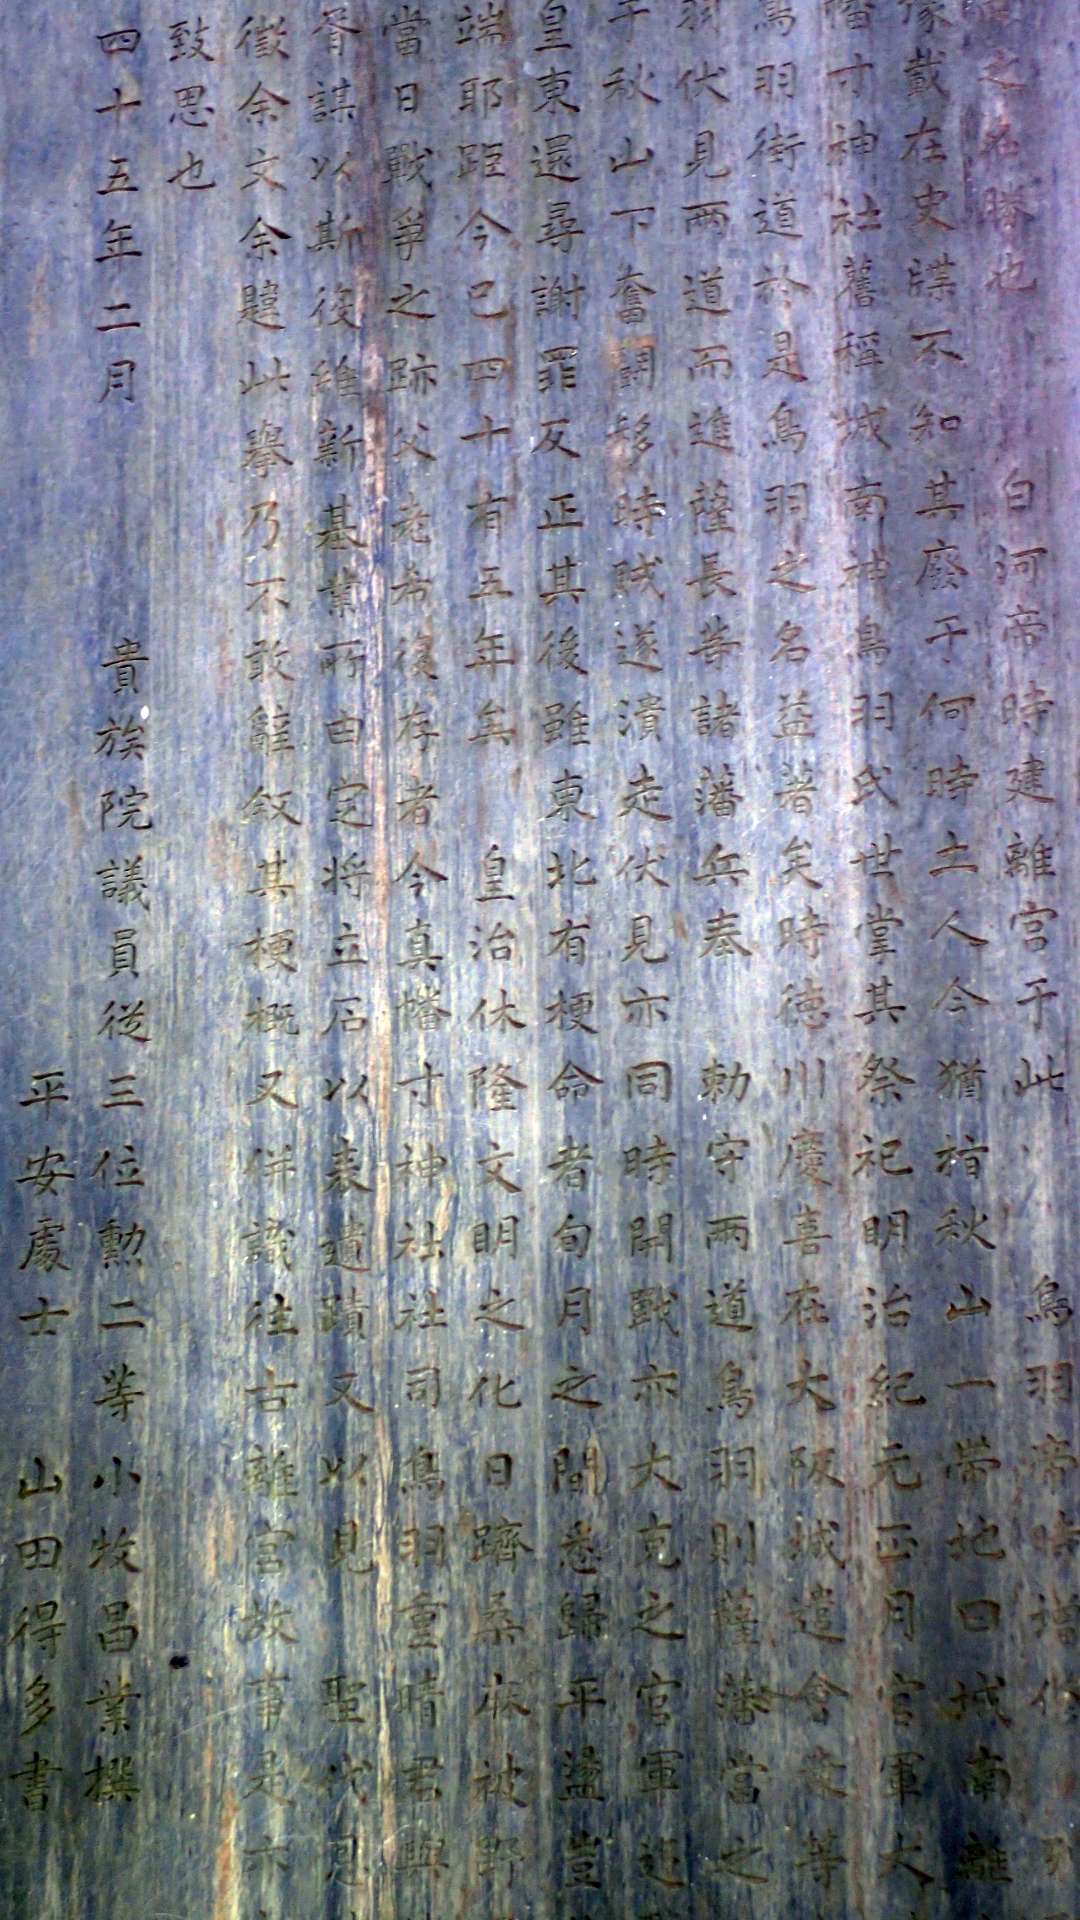 之名勝也　白河帝時建離宮于此　鳥羽帝時增修
載在史牒不知其廢于何時土人今猶指秋山一帶地曰城南離
幡寸神社舊稱城南神鳥羽氏世掌其祭祀明治紀元正月官軍大
鳥羽街道於是鳥羽之名益著矣時徳川慶喜在大阪城遣會桑等
羽伏見兩道而進薩長等諸藩兵奉　勅守兩道鳥羽則薩藩當之
于秋山下奮鬪移時賊遂潰走伏見亦同時開戰亦大克之官軍
皇東還尋謝罪反正其後雖東北有梗命者旬月之間悉歸平盪豈
端耶距今已四十有五年矣　皇治休隆文明之化日躋桑麻被野
當日戰爭之跡父老希復存者今真幡寸神社社司鳥羽重晴君與
胥謀以斯役維新基業所由定將立石以表遺蹟又以見　聖代恩
徵余文余韙此擧乃不敢辭敍其梗概又併識往古離宮故事是亦
致思也
四十五年二月　貴族院議員從三位勳二等小牧昌業撰
平安處士　山田得多書